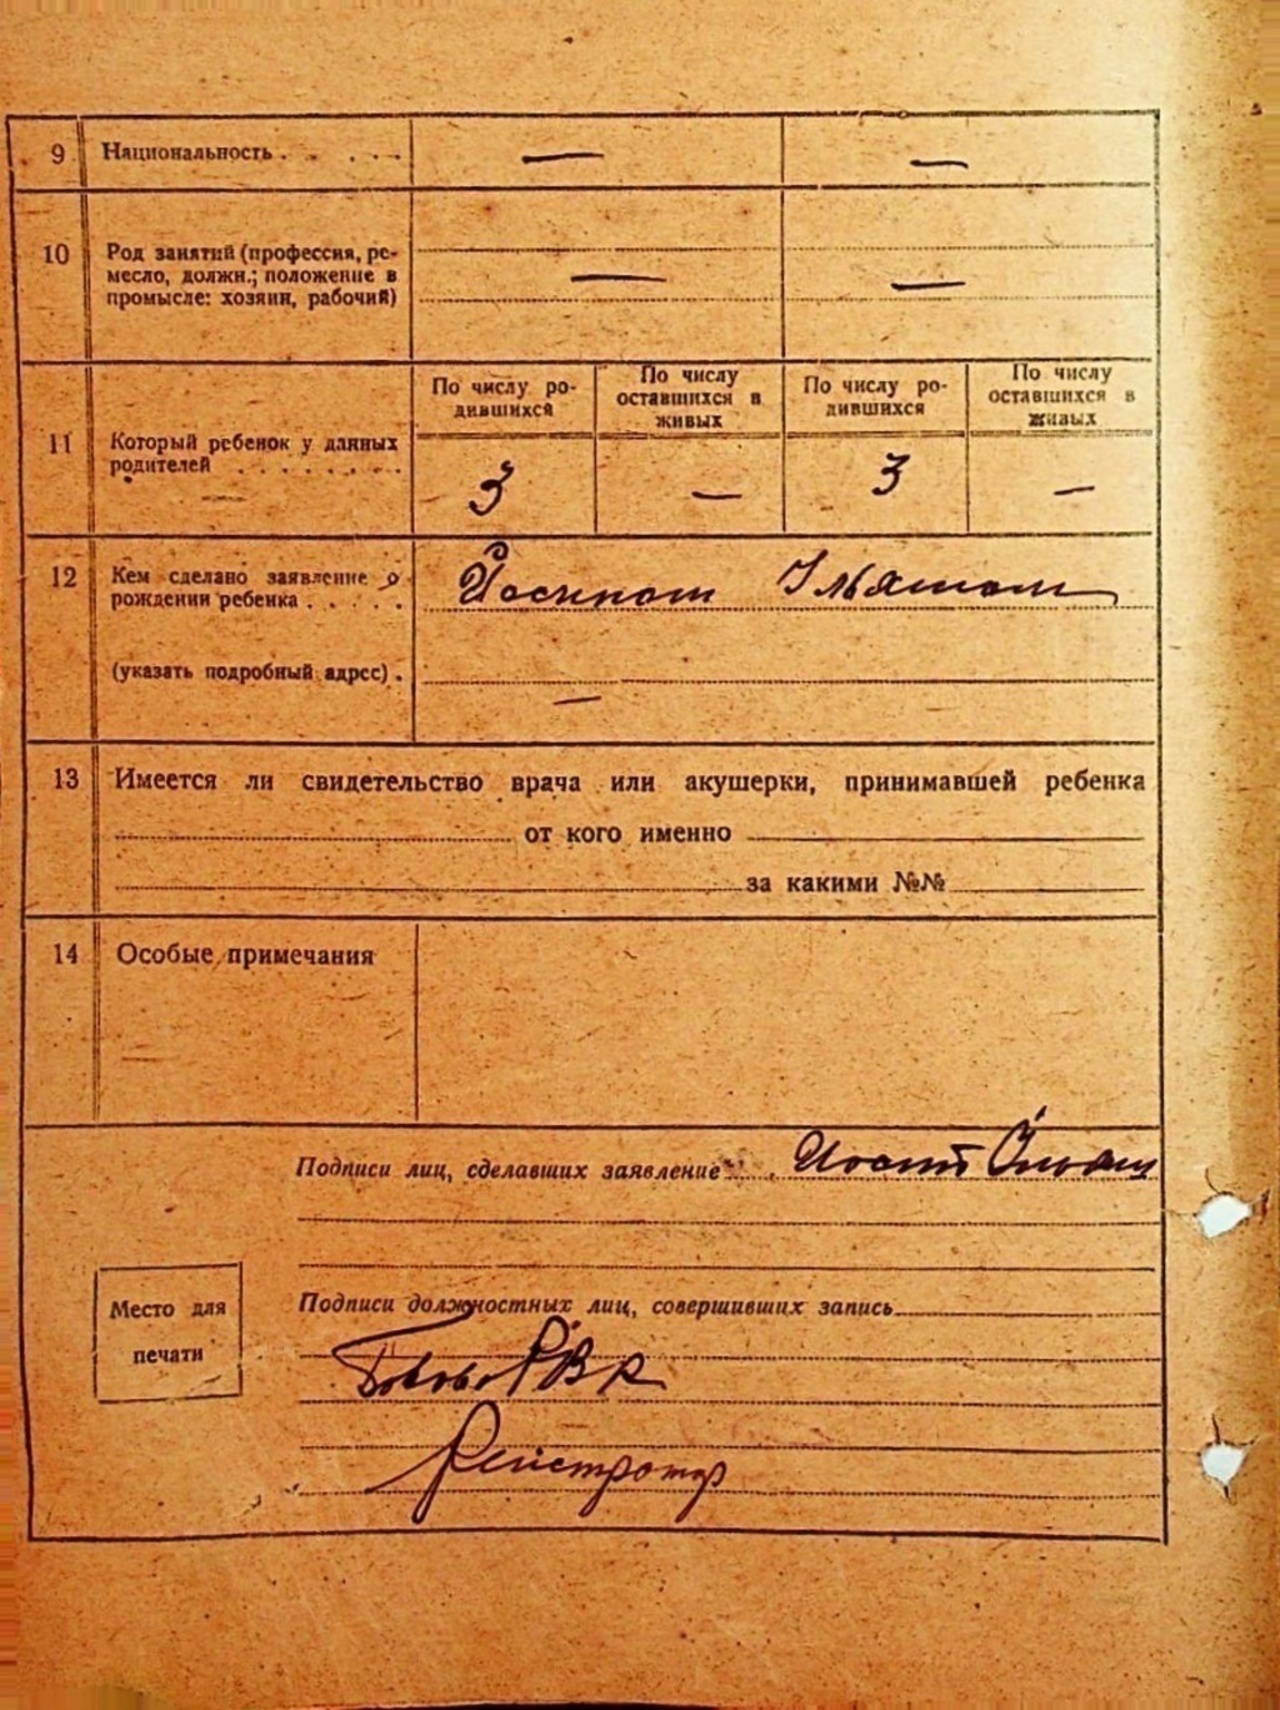 9 Национальность . . . . . — —
10 Род занятий (профессия, ре-
месло, должн.; положение в — —
промысле: хозяин, рабочий)
По числу ро- По числу По числу ро- По числу
дившихся оставшихся в дившихся оставшихся в
живых живых
11 Который ребенок у данных
родителей . . . . . . . . 3 — 3 —
12 Кем сделано заявление о
рождении ребенка . . . . .
(указать подробный адрес) .
—
13 Имеется ли свидетельство врача или акушерки, принимавшей ребенка
от кого именно
за какими №№
14 Особые примечания
Подписи лиц, сделавших заявление
Подписи должностных лиц, совершивших запись
Место для
печати
Регистратор